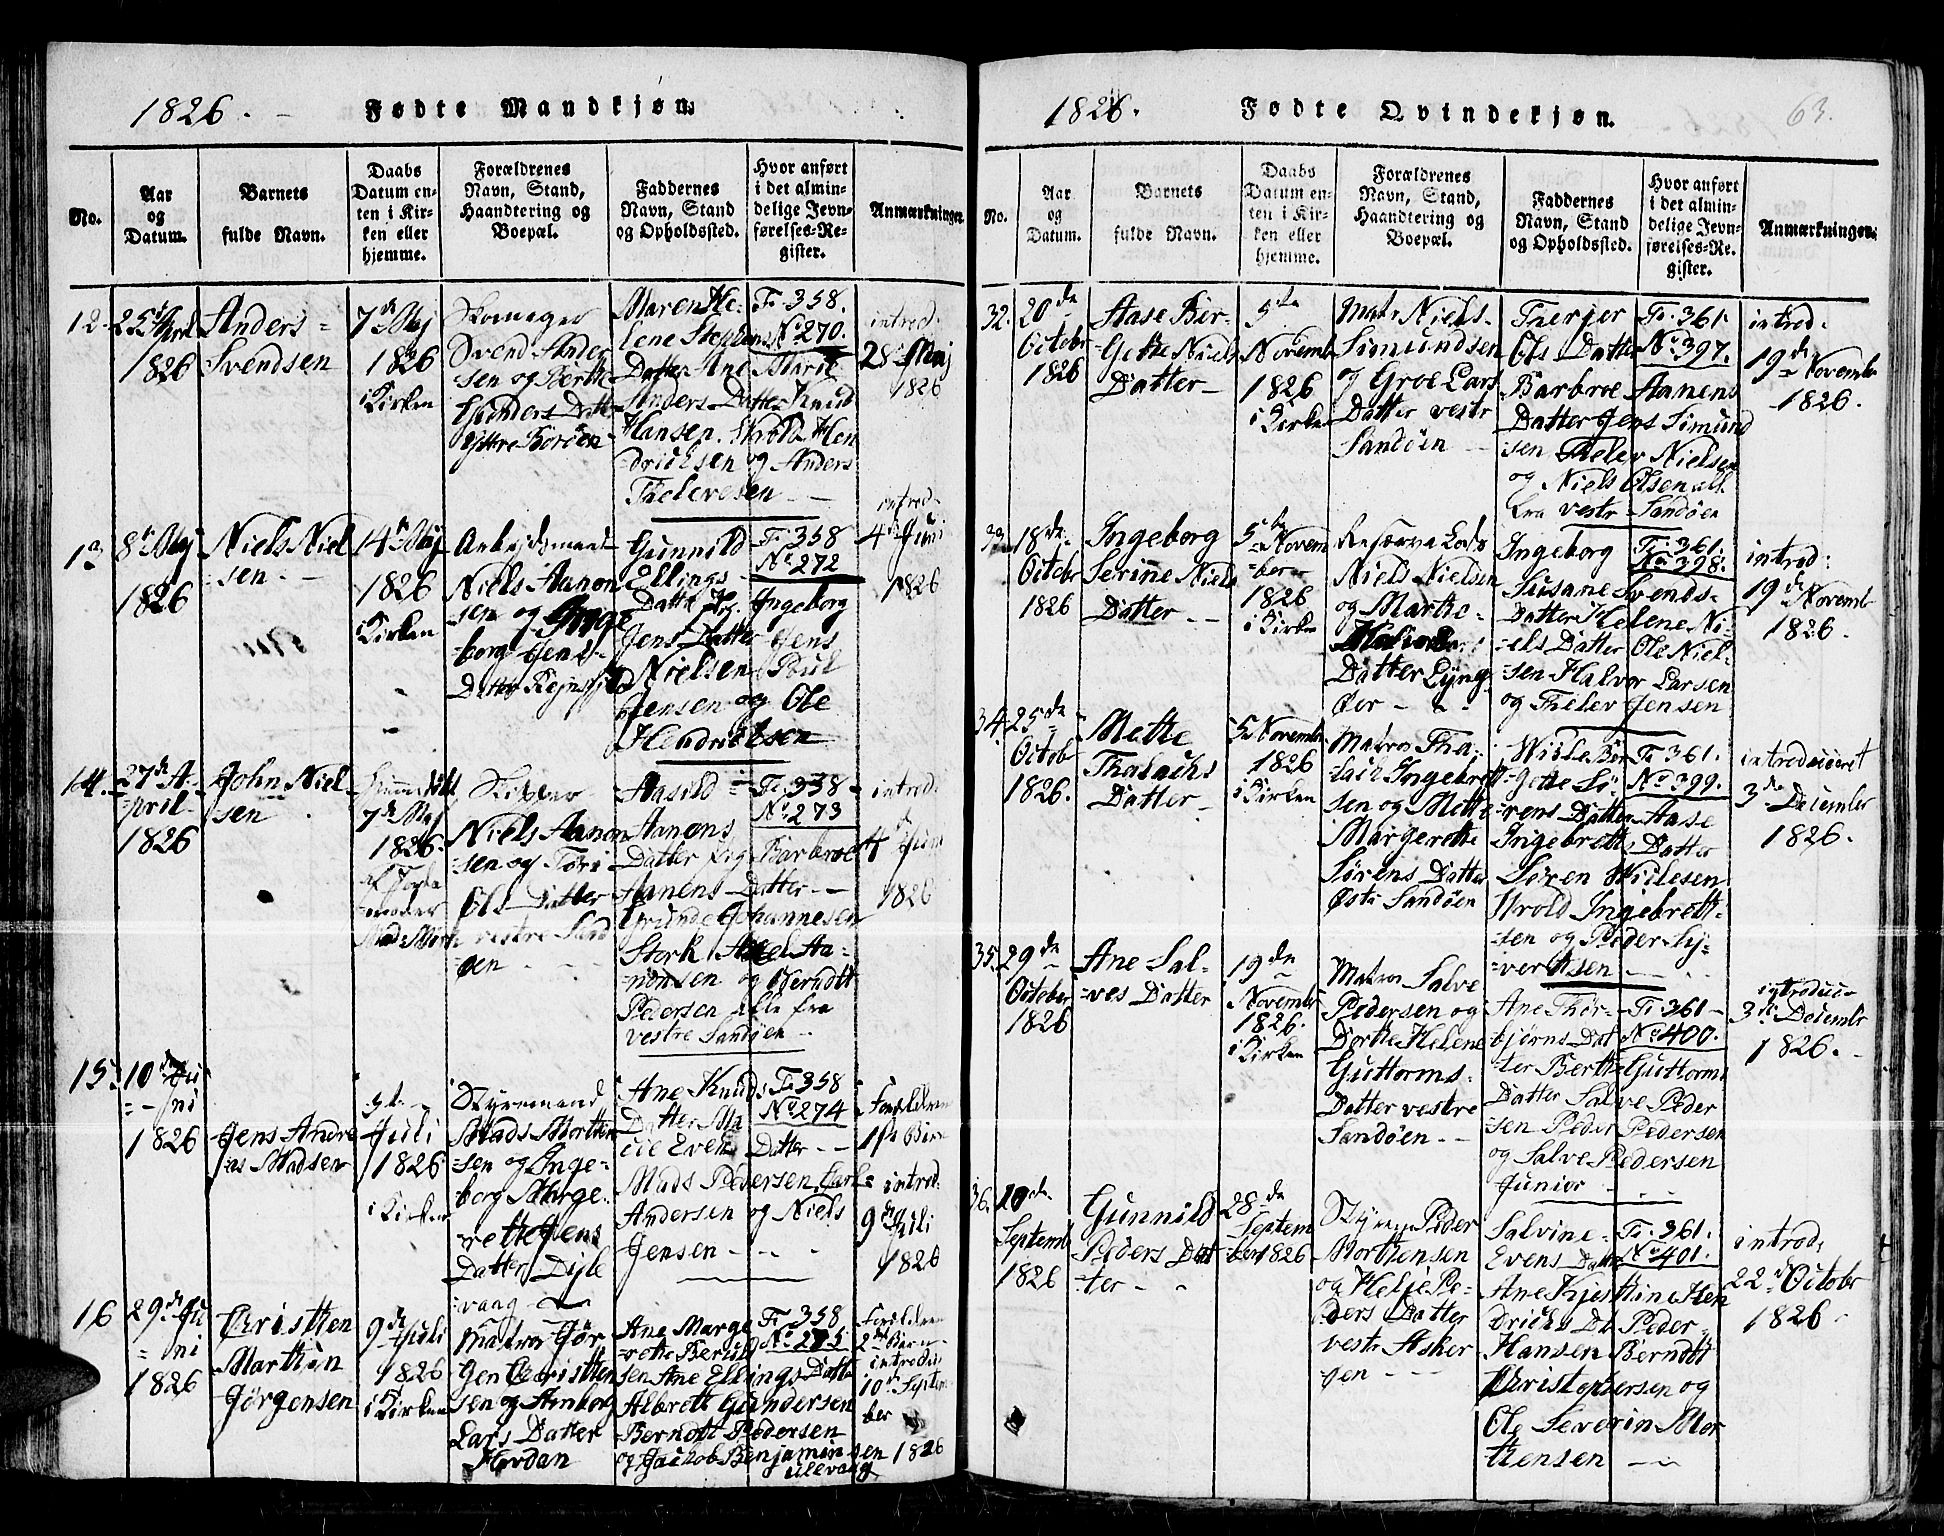 1826. Fødte Mandkjøn.
No.
Aar
og
Datum.
Barnets
fulde Navn.
Daabs
Datum en-
ten i Kir-
ken eller
hjemme.
Forældrenes
Navn, Stand,
Haandtering og
Boepæl.
Faddernes
Navn, Stand
og Opholdssted.
Hvor anført
i det almin-
delige Jevn-
førelses-Re-
gister.
Anmærkninger.
12.
25de April
1826
Anders
Svendsen
7de Maj
1826
i Kirken
Skomager
Svend Ander
sen og Berthe
Gunders Datter
Yttre Borøen
Maren He-
lene Stephens
Datter Ane Marie
Anders Datter Knud
Hansen. Wrold Hen
-drichsen og Anders
Thelevesen
Fr. 358.
No 270.
introd.
28de Maj
1826
13
8de Maj
1826
Niels Niel
-sen.
14de Maj
1826
i Kirken
Arbejdsmand
Niels Aanon
sen og Inge
-borg Jens-
Datter
Gunnild
Ellings
Datter Frg. Ingeborg
Jens Datter Jens
Nielsen Poul
Jensen og Ole
Hendrichsen
Fr. 358
No 272
introd.
4de Juni
1826
14.
27de A-
-pril
1826
John Niel
sen
hiemmedøbt
7de Maj
1826.
Skipper
Niels Aanon
-sen og Tøri
Ols Datter
vestre Sand
øen
Aasild
Aanens
Datter frg Barbroe
Aanens Datter
Gunde Johannesen
Stork Axel Aa-
nonsen og Berndt
Pedersen alle fra
vestre Sandøen
Fr. 358
No 273
introd.
4de Juni
1826
15.
10de Ju
-ni
1826
Jens Andre
as Madsen
3de
Juli
1826
i Kirken
Styremand
Mads Morten
-sen og Inge-
borg Marge-
rethe Jens
Datter Dyle
vang
Ane Knuds
Datter Ma
cie Evens Datter
Mads Pedersen Carl
Andersen og Niels
Jensen
Fr. 358
No 274
Forældrene
1ste Barn
introd.
9de Juli
1826
16
29de Ju
-ni
1826
Christten
Marthin
Jørgensen
9de
Juli
1826
i Kirken
Matros Jør
gen Christten
sen og Amborg
Lars Datter
Hordan
Ane Marge
-rethe Berndt
sen Ane Ellings Datter
Albrett Gundersen
Berndt Pedersen
og Jachob Benjaminsen
Ulevaag
Fr. 358
No 275
Forældrene
2det Barn
introdu
10de Septem
ber
1826
1826. Fødte Qvindekjøn. 63.
No.
Aar
og
Datum.
Barnets
fulde Navn.
Daabs
Datum en-
ten i Kir-
ken eller
hjemme.
Forældrenes
Navn, Stand,
Haandtering og
Boepæl.
Faddernes
Navn, Stand
og Opholdssted.
Hvor anført
i det almin-
delige Jevn-
førelses-Re-
gister.
Anmærkninger.
32.
20de
Octobr
1826
Aase Bir-
Gette Niels
Datter
5te
Novembr
1826
i Kirken
Matr Niels
Simundsen
og Groe Lars
Datter vestr
Sandøen
Therjer
Ols Datter
Barbroe Aanens
Datter Jens Simund
sen Thelev Nielsen
og Niels Olsen alle
fra vestr Sandøen
Fr. 361.
No 397.
introd.
19de Novembr
1826.
33
18de
Octobr
1826
Ingeborg
Serine Niels
Datter
5te Novem
-ber
1826
i Kirken
Reserve Lods
Niels Nielsen
og Marthe
Halvors
Datter Lyng
Øer
Ingeborg
Susane Svends-
Datter Helene Ni-
-els Datter Ole Niel-
sen Halvor Larsen
og Thelev Jensen
Fr. 361.
No 398.
introd:
19de Novembr
1826.
34.
25de
Octob
1826.
Mette
Thalachs
Datter
5te Novembr
1826
i Kirken
Matros Tha
-lach Ingebrett
sen og Mette
Margerethe
Sørens Datter
Østr Sandøen
Wivle Bir
-gette Sø-
rens Datter Aase
Ingebretts Datter
Søren Wivlesen
Wrold Ingebrett-
-sen og Peder Sy-
-vertsen
Fr. 361.
No 399.
introduceret
3de Decembr
1826.
35.
29de
October
1826
Ane Sal-
-ves Datter
19de
Novembr
1826.
i Kirken
Matros Salve
Pedersen og
Dorthe Helene
Guttorms-
Datter vestre
Sandøen
Ane Thor-
bjørns Dat
ter Berthe Guttorms
Datter Salve Peder
sen Peder Pedersen
og Salve Pedersen
Junior
Fr. 361
No 400.
introduc-
3de Decembr
1826.
36.
10de
Septembr
1826
Gunnild
Peders Dat
-ter
28de
Septem
ber 1826
Styrm Peder
Morttensen
og Helje Pe-
ders Datter
vestr Asker
øen
Salvine
Evens Datter
Ane Kjestine Hen
drichs Dr Peder
Hansen Berndt
Christophersen og
Ole Severin Mor
thensen
Fr. 361.
No 401.
introd:
22de Octobr
1826